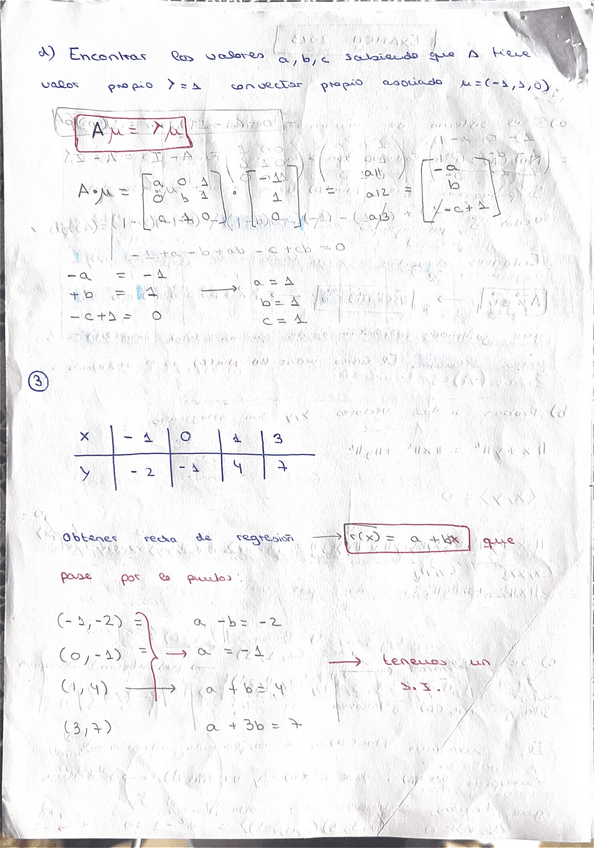 d) Encontrar los valores a, b, c sabiendo que A tiene
valor propio λ = 1 con vector propio asociado μ = (-1, 1, 0)
Aμ = λμ
A·μ = [a 0 1; 0 b 1; 1 0] · [-1; 1; 0] = = [-a; b; -c + 1]
-a = -1
+b = 1 → a = 1
b = 1
-c + 1 = 0 c = 1
3
X | -1 | 0 | 1 | 3
Y | -2 | -1 | 4 | 7
Obtener recta de regresión → r(x) = a + bx que
pase por los puntos:
(-1, -2) = a - b = -2
(0, -1) = → a = -1 → tenemos un
(1, 4) → a + b = 4 S.I.
(3, 7) a + 3b = 7